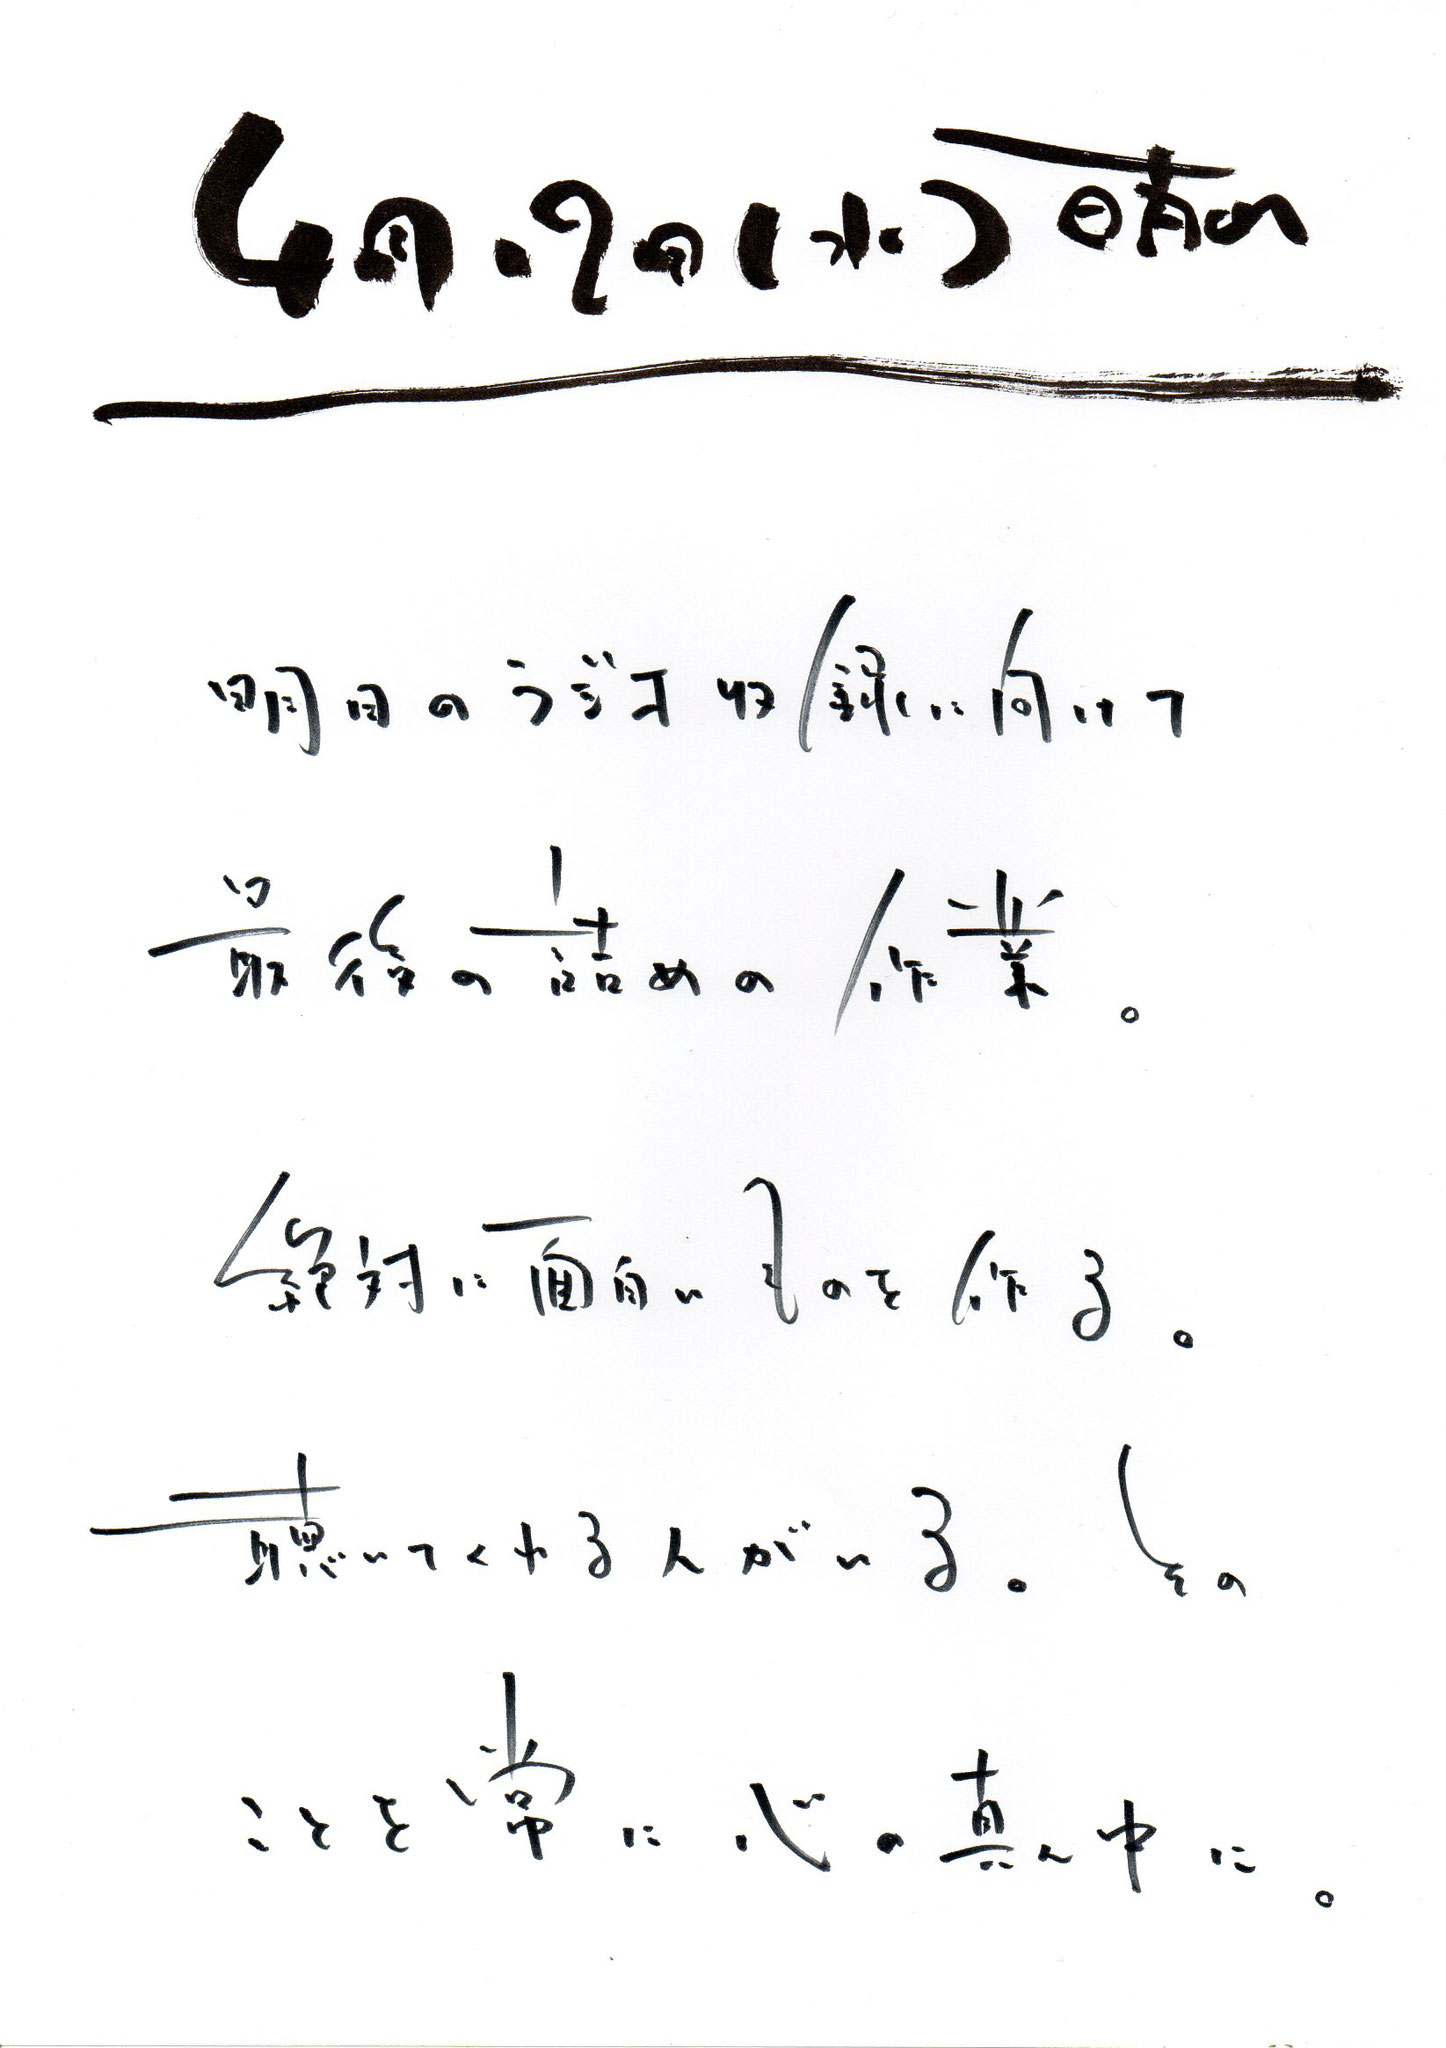 4月.9日(水)晴れ
明日のラジオ収録に向けて
最後の詰めの作業。
絶対に面白いものを作る。
聴いてくれる人がいる。その
ことを常に心の真ん中に。